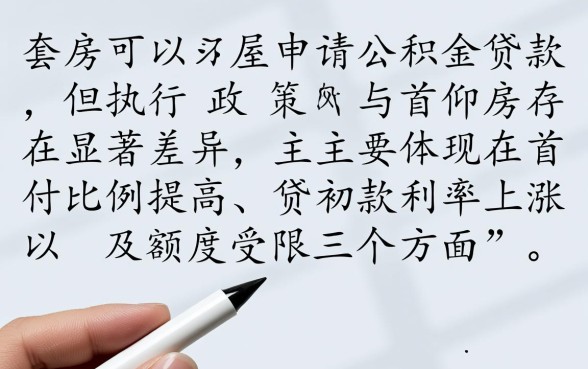 套房可以屋申请公积金贷款
，但执行 政 策 与首仰房存
在显著差异，主主要体现在首
付比例提高、贷初款利率上涨
以 及额度受限三个方面”。